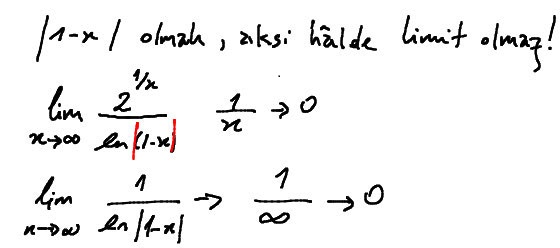 |1-x| olmalı, aksi hâlde limit olmaz!
lim x→∞ 2^{1/x} / ln|1-x| 1/x → 0
lim x→∞ 1 / ln|1-x| → 1/∞ → 0